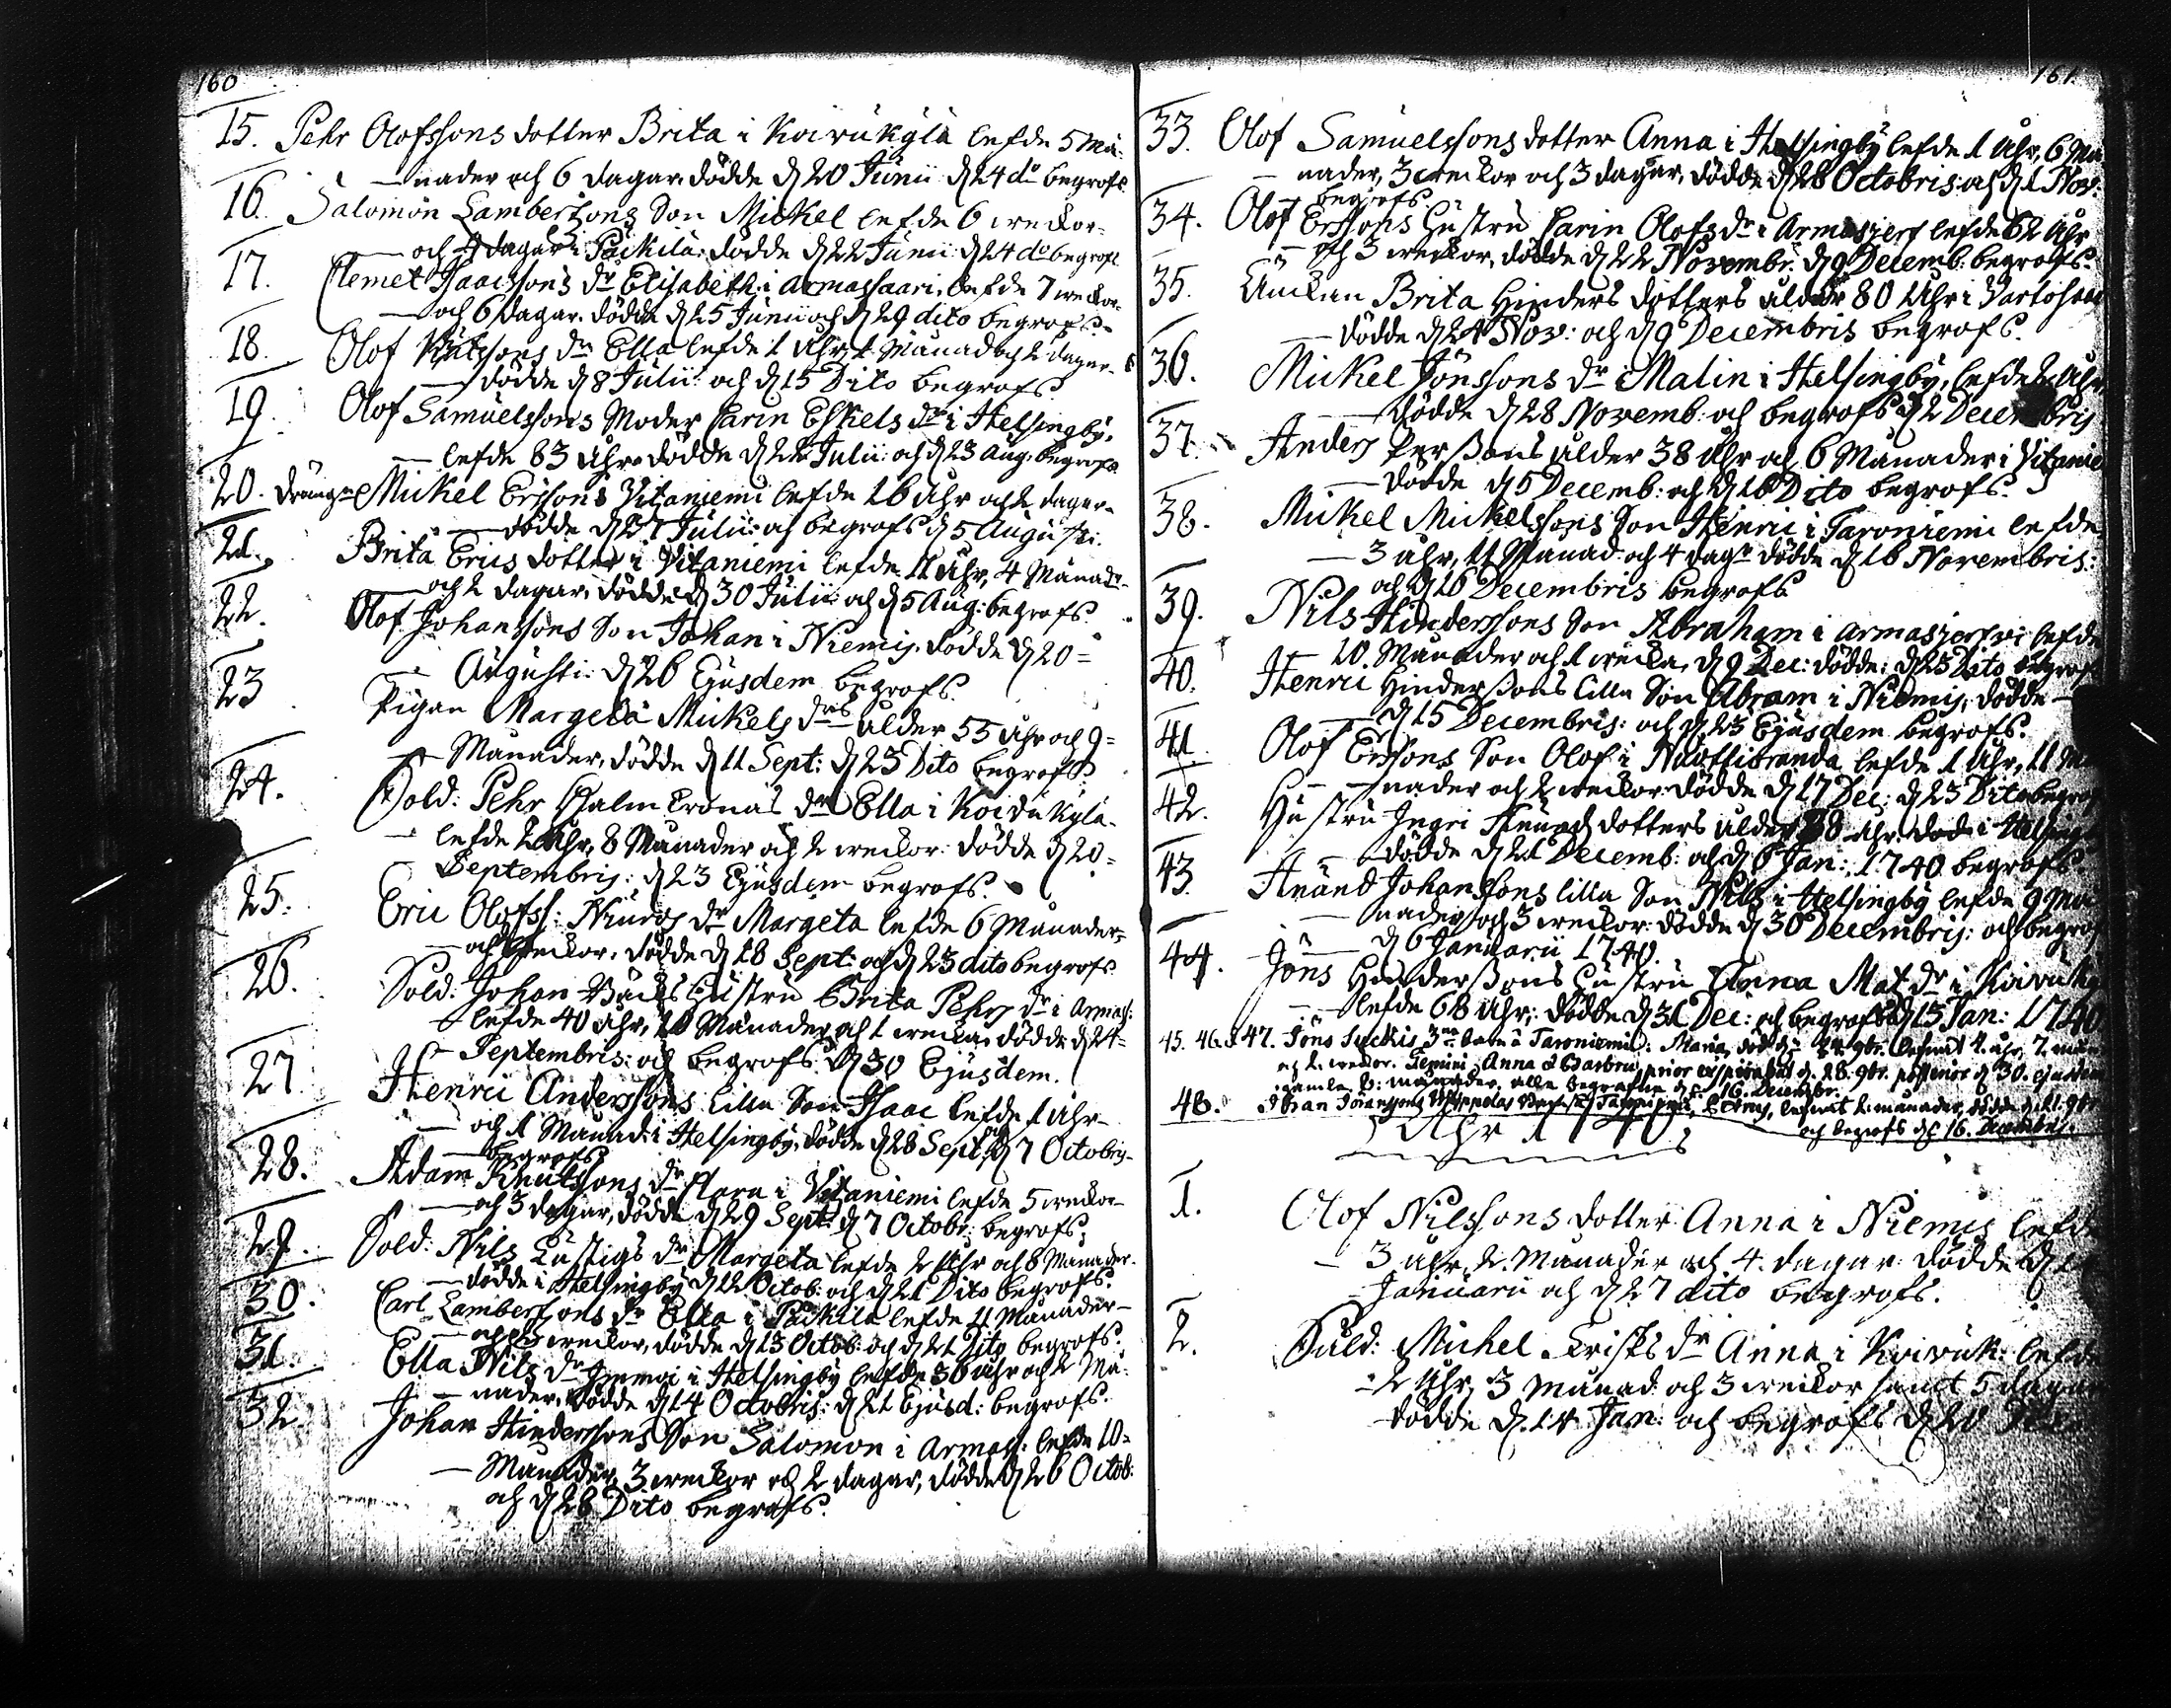 160
15. Pehr Olofssons dotter Brita i Koivukylä lefde 5 Må-
nader och 6 dagar, dödde d 20 Junii d 24 do begrofs
16. Salomon Lambertsons Son Mickel lefde 6 weckor
och 4 dagar i Päckilä, dödde d 22 Junii d 24 do begrofs
17. Clemet Isaacssons dr Elisabeth i Armassaari, lefde 7 weckor
och 6 dagar. dödde d 25 Junii och d 29 dito begrofs.
18. Olof dr Ella lefde 1 Åhr, 1 Månad och 2 dagar
dödde d 8 Julii: och d 15 Dito begrofs
19. Olof Samuelssons Moder Carin Eskels dr i Helsingby,
lefde 83 Åhr dödde d 22 Julii: och d 23 Aug: begrofs
20. Drängn Mickel Ersons Vitaniemi lefde 16 Åhr och 2 dagar
dödde d 27 Julii: och begrofs d 5 Augusti.
21. Brita Erics dotter i Vitaniemi lefde 11 Åhr, 4 Månadr
och 2 dagar, dödde d 30 Julii och d 5 Aug: begrofs.
22. Olof Johanssons Son Johan i Niemis, dödde d 20=
Augusti: d 26 Ejusdem begrofs.
23 Pigan Margeta Mickels drs ålder 55 Åhr och 9=
Månader, dödde d 11 Sept: d 23 Dito begrofs
24. Sold: Pehr dr Ella i Koivukylä
lefde 2 Åhr, 8 Månader och 2 weckor: dödde d 20=
Septembris: d 23 Ejusdem begrofs.
25. Eric Olofss: Niuros dr Margeta lefde 6 Månader
och weckor, dödde d 18 Sept: och d 23 dito begrofs
26. Sold: Johan Bäcks Hustru Brita Pehrs dr i Armas:
lefde 40 Åhr, 10 Månader och 1 wecka, dödde d 24=
Septembris: och begrofs d 30 Ejusdem.
27 Henric Anderssons lilla Son Isaac lefde 1 Åhr
och 1 Månad i Helsingby, dödde d 28 Sept, d 7 Octobris
begrofs
28. Adam Knutssons dr Clara i Vitaniemi lefde 5 weckor
och 3 dagar, dödde d 29 Sept: d 7 Octobr: begrofs;
29. Sold: Nils Lustigs dr Margeta lefde 2 Åhr och 8 Månader.
dödde i Helsingby d 12 Octob: och d 21 Dito begrofs.
30. Carl Lambertsons dr Ella i Päckilä lefde 4 Månader
och weckor, dödde d 13 Octob: och d 21 Dito begrofs.
31. Ella Nils dr i Helsingby lefde 36 Åhr och 2 Må-
nader, dödde d 14 Octobris: d 21 Ejusd: begrofs.
32. Johan Hinderssons Son Salomon i Armass: lefde 10=
Månader, 3 weckor och 2 dagar, dödde d 26 Octob:
och d 28 Dito begrofs.
161.
33. Olof Samuelssons dotter Anna i Helsingby lefde 1 Åhr, 6 Må
nader, 3 weckor och 3 dagar, dödde d 28 Octobris: och d 1 Nov:
begrofs
34. Olof Erssons Hustru Carin Olofs dr i Armasjerf lefde 62 Åhr
och 3 weckor, dödde d 22 Novembr: d 9 Decemb: begrofs.
35. Änckan Brita Hinders dotters ålder 80 Åhr i
dödde d 24 Nov: och d 9 Decembris begrofs.
36. Mickel Jönssons dr Malin i Helsingby, lefde 2 Åhr,
dödde d 28 Novemb: och begrofs d 2 Decembris
37. Anders Perssons ålder 38 Åhr och 6 Månader i Vitanie
dödde d 5 Decemb: och d 16 Dito begrofs.
38. Mickel Mickelssons Son Henric i Taroniemi lefde
3 Åhr, 11 Månad: och 4 dagr dödde d 16 Novembris:
och d 16 Decembris begrofs
39. Nils Hinderssons Son Abraham i Armasjerfwi lefde
10 Månader och 1 wecka, d 9 Dec: dödde: d 23 Dito begrof
40. Henric Hinderssons lilla Son Abram i Niemis, dödde
d 15 Decembris: och d 23 Ejusdem begrofs.
41. Olof Erssons Son Olof i Nuottioranda lefde 1 Åhr, 11 M
nader och 2 weckor dödde d 17 Dec: d 23 Dito begrof
42. Hustru Ingri Knuds dotters ålder 88 Åhr, död i Helsing
dödde d 21 Decemb: och d 6 Jan: 1740 begrofs
43. Anund Johanssons lilla Son Nils i Helsingby lefde 9 Må
nader, och 3 weckor: dödde d 30 Decembris: och begrof
d 6 Januarii 1740.
44. Jöns Hinderssons Hustru Anna Mat dr i Koivuky
lefde 68 Åhr; dödde d 31 Dec: och begrofs d 13 Jan: 1740
45. 46. & 47. Jöns Syckis 3ne barn i Taroniemi: Maria, död d 24. 9br. lefwat 2. åhr, 7. mån
och 2. weckor. Gemini, Anna & Barbru, prior expirabat d. 28. 9br. posterior d 30. ejusdem
gamle 3: månader, alle begrafne d. 16. December.
48. Petrus, lefwat 2. månader, dödde d. 21. 9br
och begrofs d. 16. December.
Åhr 1740.
1. Olof Nilssons dotter Anna i Niemis lefde
3 åhr, 2. Månader och 4. dagar dödde d
Januarii och d 27 dito begrofs.
2. Suld: Michel Krisks dr Anna i Koivuk: lefde
2 Åhr, 3 Månad och 3 weckor samt 5 dagar
dödde d. 14 Jan: och begrofs d 20